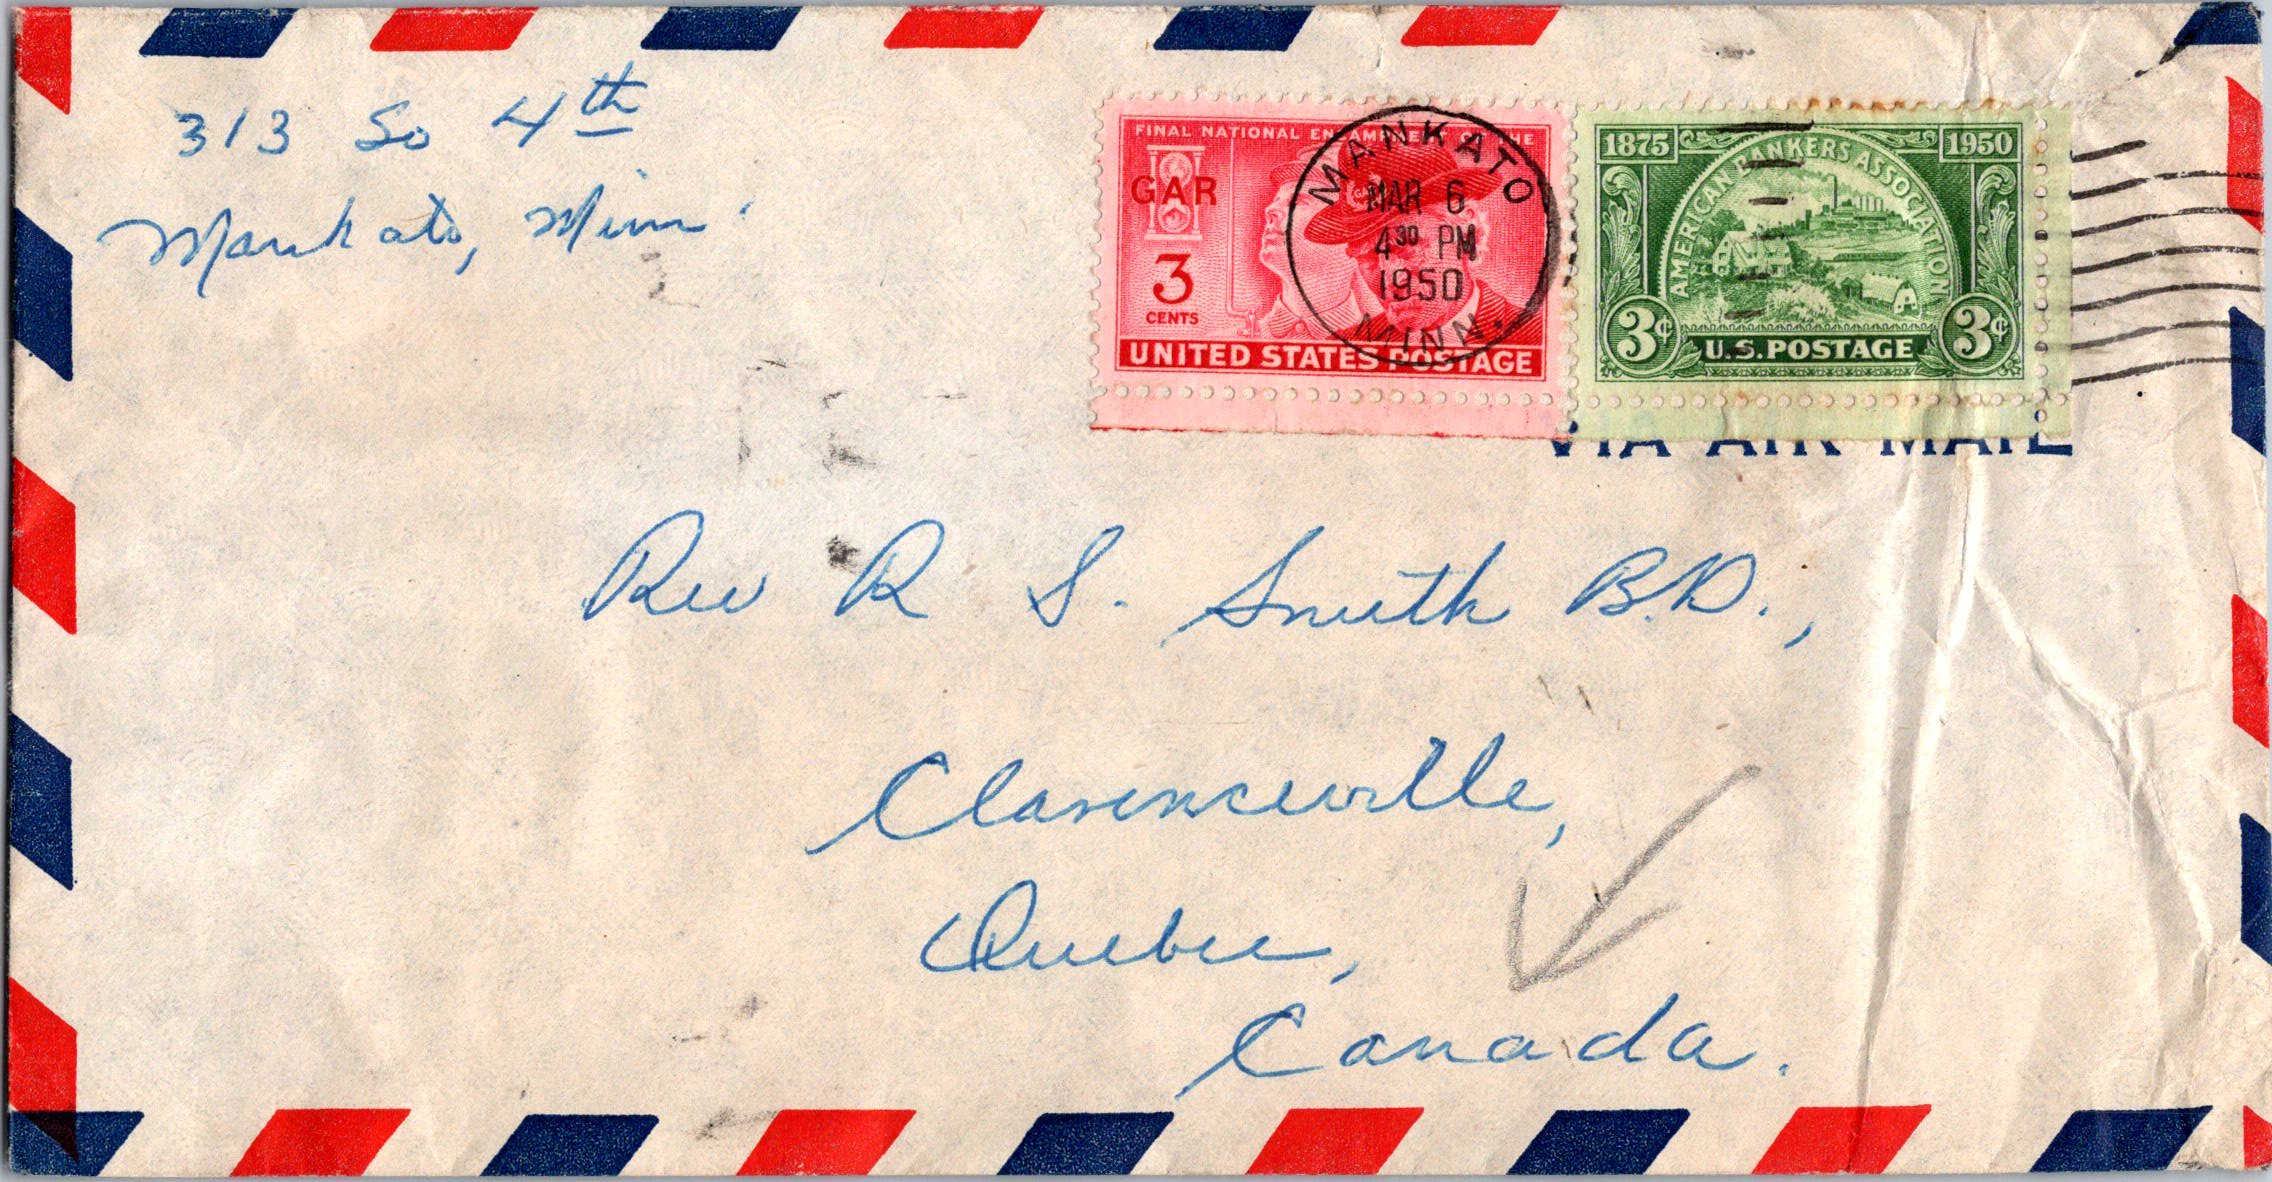 313 So 4th
Mankato, Minn.
FINAL NATIONAL ENCAMPMENT OF THE
GAR
3
CENTS
UNITED STATES POSTAGE
MANKATO
MAR 6
4 30 PM
1950
MINN.
1875 1950
AMERICAN BANKERS ASSOCIATION
3¢ 3¢
U.S. POSTAGE
VIA AIR MAIL
Rev R S. Smith B.D.,
Clarenceville,
Quebec,
Canada.